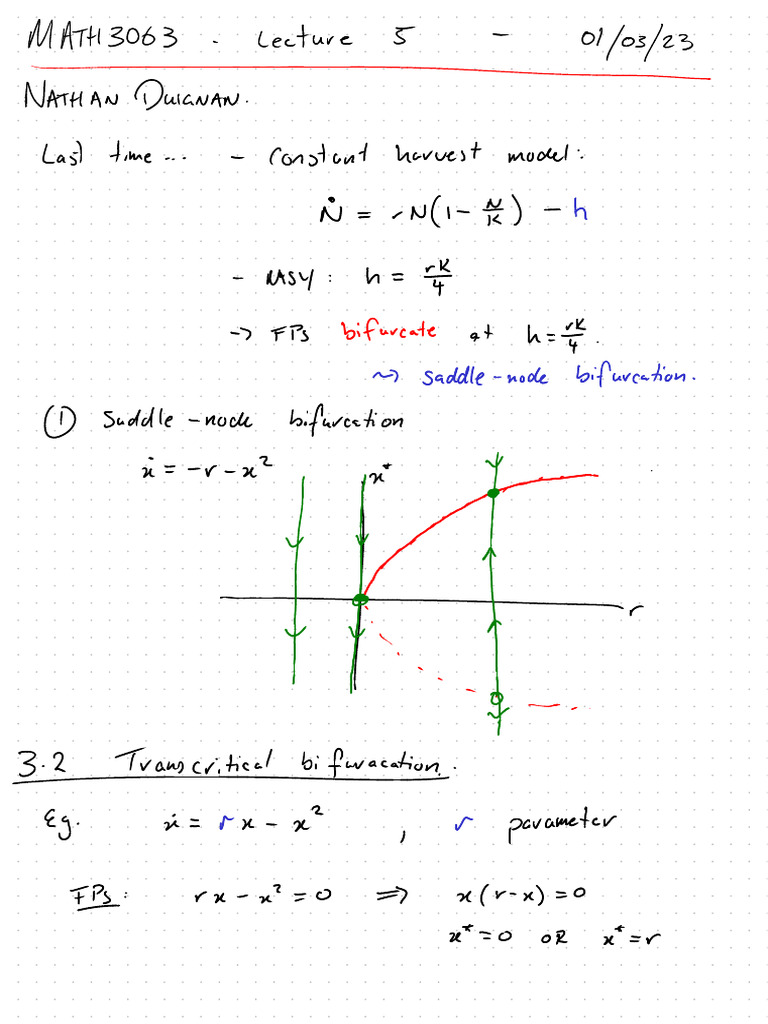 MATH3063 - Lecture 5 - 01/03/23
NATHAN DUIGNAN.
Last time... - Constant harvest model:
Ṅ = rN(1 - N/K) - h
- MSY: h = rK/4
-> FPs bifurcate at h = rK/4.
⤳ saddle-node bifurcation.
① Saddle-node bifurcation
ẋ = -r - x²
x*
r
3.2 Transcritical bifuracation.
Eg. ẋ = rx - x² , r parameter
FPs: rx - x² = 0 ⟹ x(r-x) = 0
x* = 0 OR x* = r